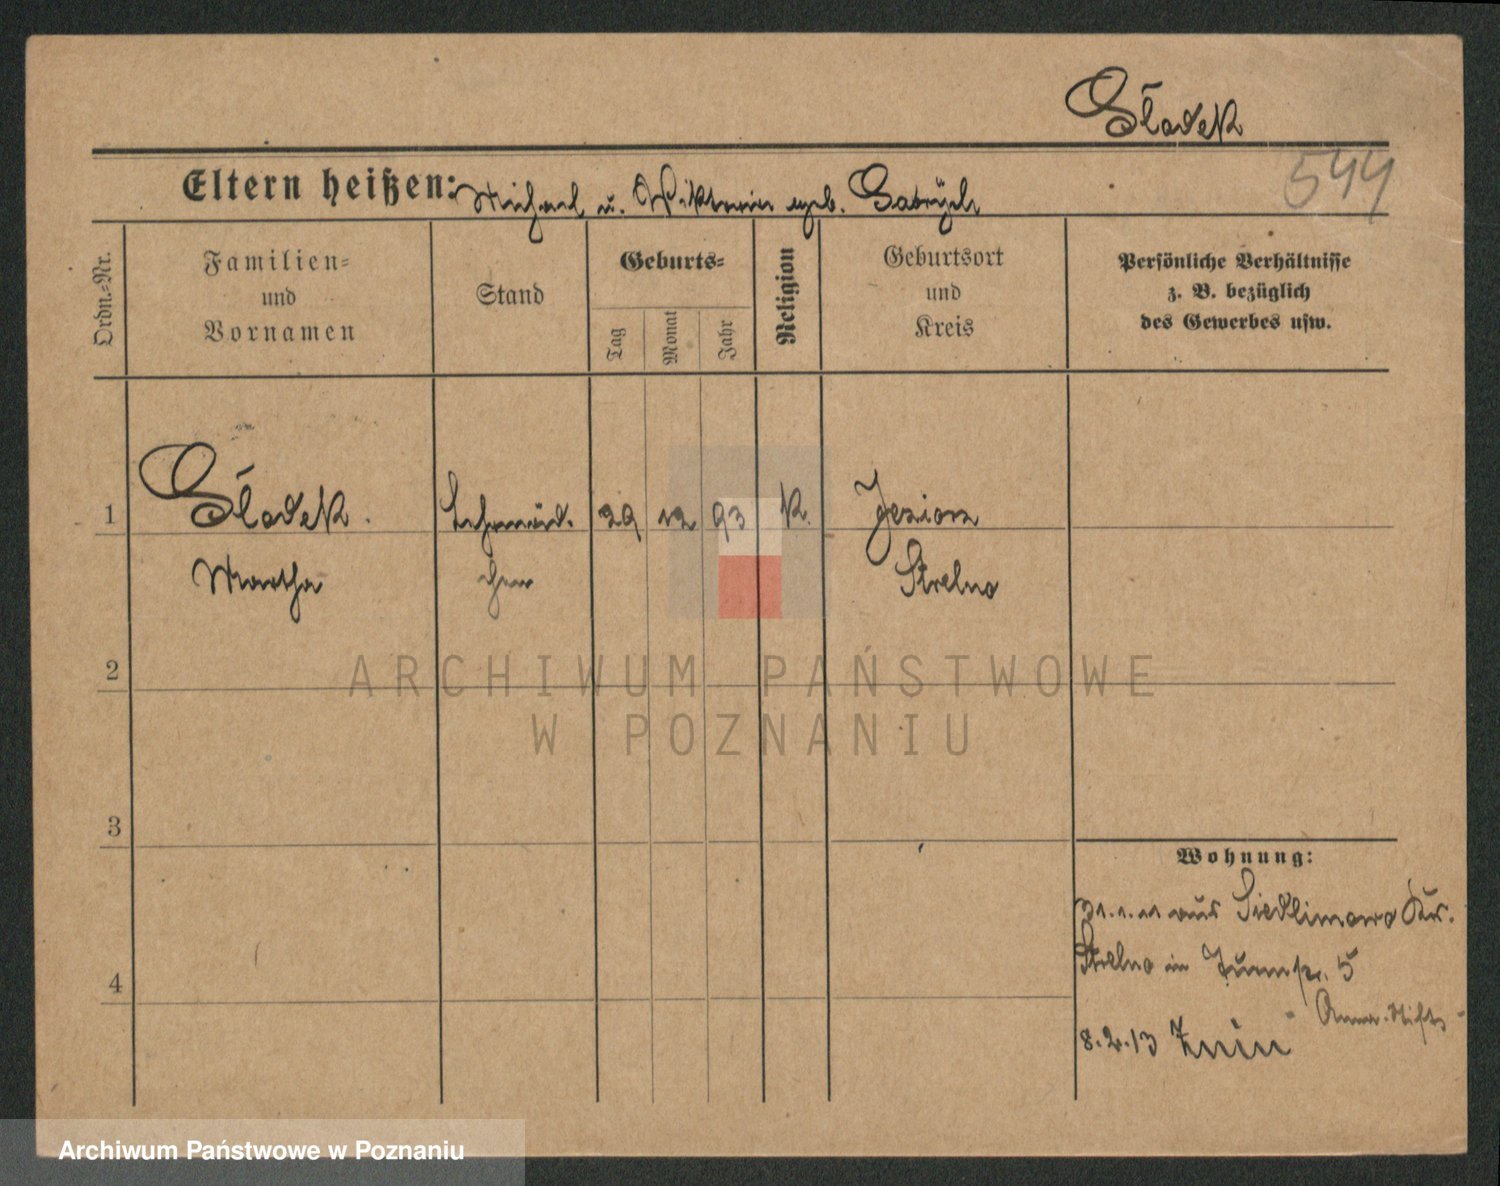 Słodek
544
Eltern heißen: Michael u. Wiktoria geb.
Ordn.-Nr.
Familien-
und
Vornamen
Stand
Geburts-
Tag
Monat
Jahr
Religion
Geburtsort
und
Kreis
Persönliche Verhältnisse
z. B. bezüglich
des Gewerbes usw.
1
Słodek.
Lehrmäd.
29
12
93
K.
Jeziora
Martha
chen
Strelno
2
ARCHIWUM PAŃSTWOWE
W POZNANIU
3
Wohnung:
31.1.11 aus Siedlimowo Kr.
Strelno in 5
4
8.2.13 Znin
Archiwum Państwowe w Poznaniu